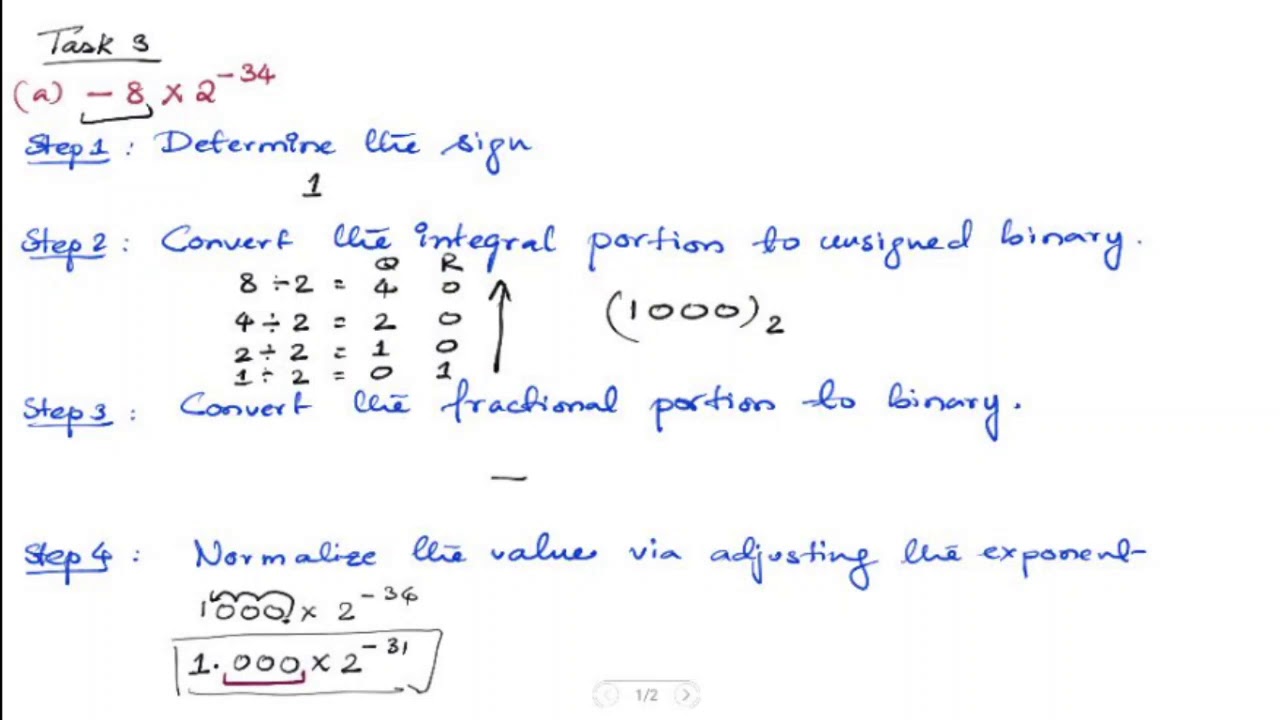 Task 3
(a) - 8 × 2^-34
Step 1 : Determine the sign
1
Step 2 : Convert the integral portion to unsigned binary.
Q R
8 ÷ 2 = 4 0
4 ÷ 2 = 2 0
2 ÷ 2 = 1 0
1 ÷ 2 = 0 1
(1000)2
Step 3 : Convert the fractional portion to binary.
—
Step 4 : Normalize the value via adjusting the exponent
1000 × 2^-34
1.000 × 2^-31
1/2